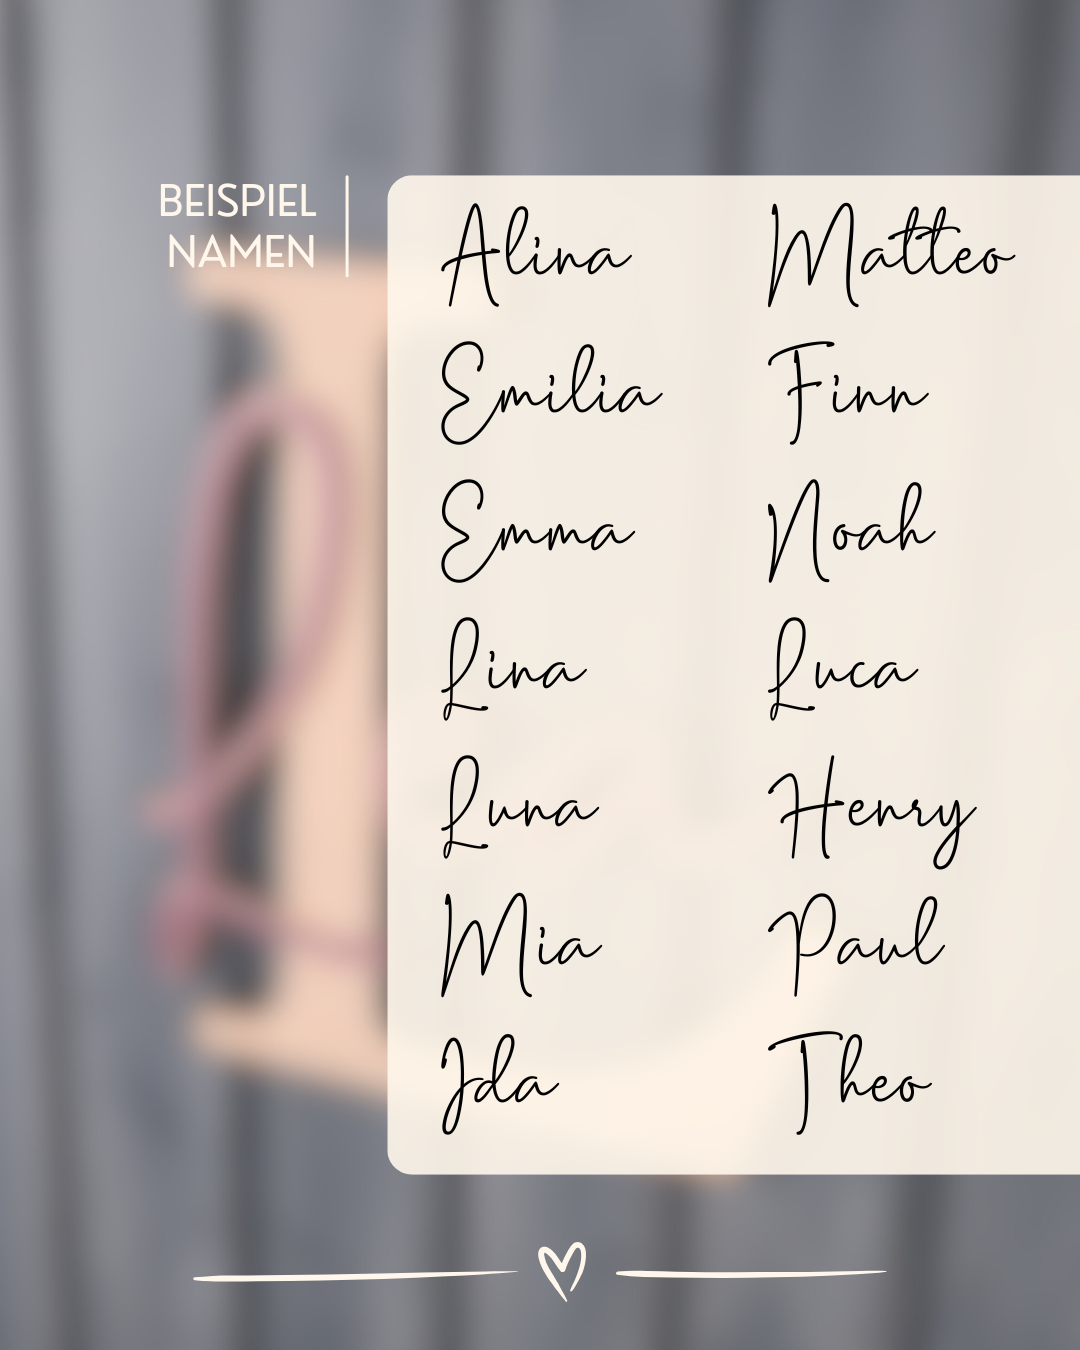 BEISPIEL
NAMEN
Alina
Emilia
Emma
Lina
Luna
Mia
Ida
Matteo
Finn
Noah
Luca
Henry
Paul
Theo